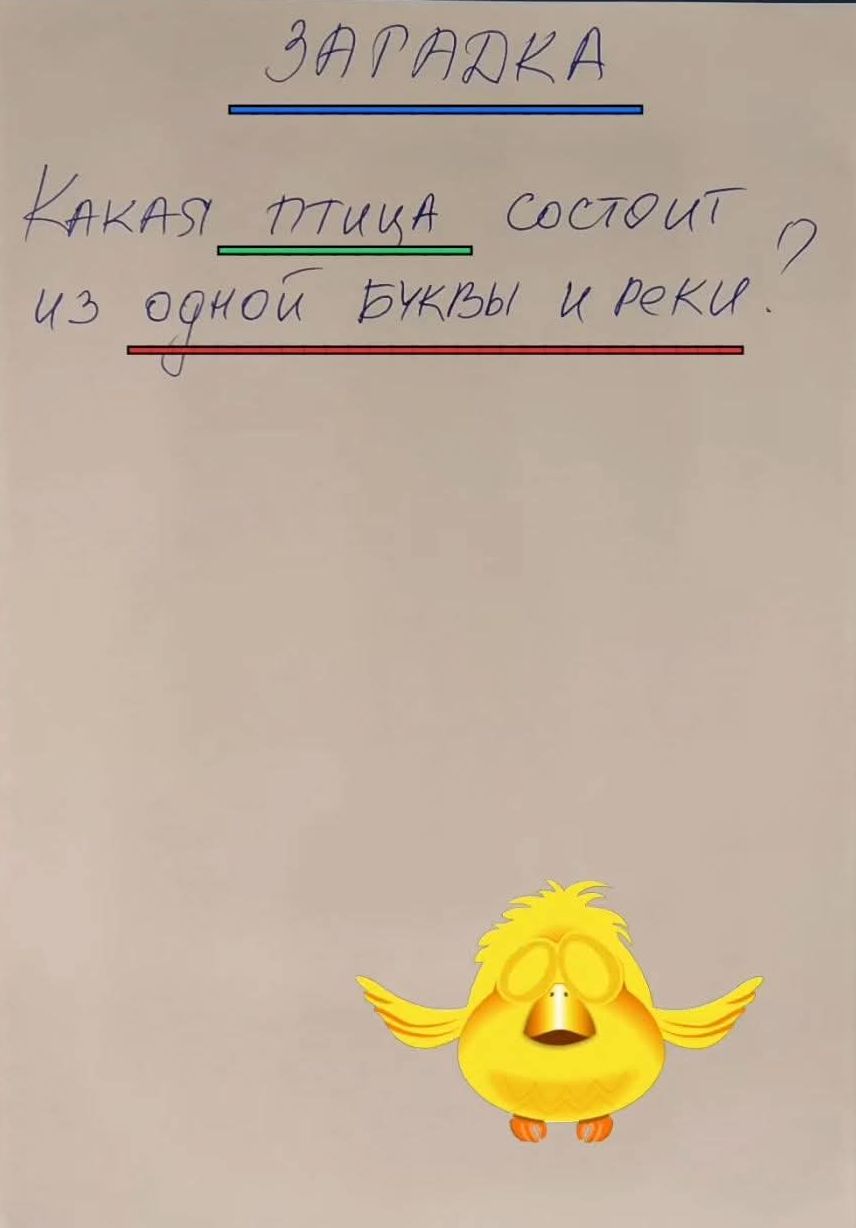 ЗАГАДКА
Какая птица состоит
из одной буквы и реки?